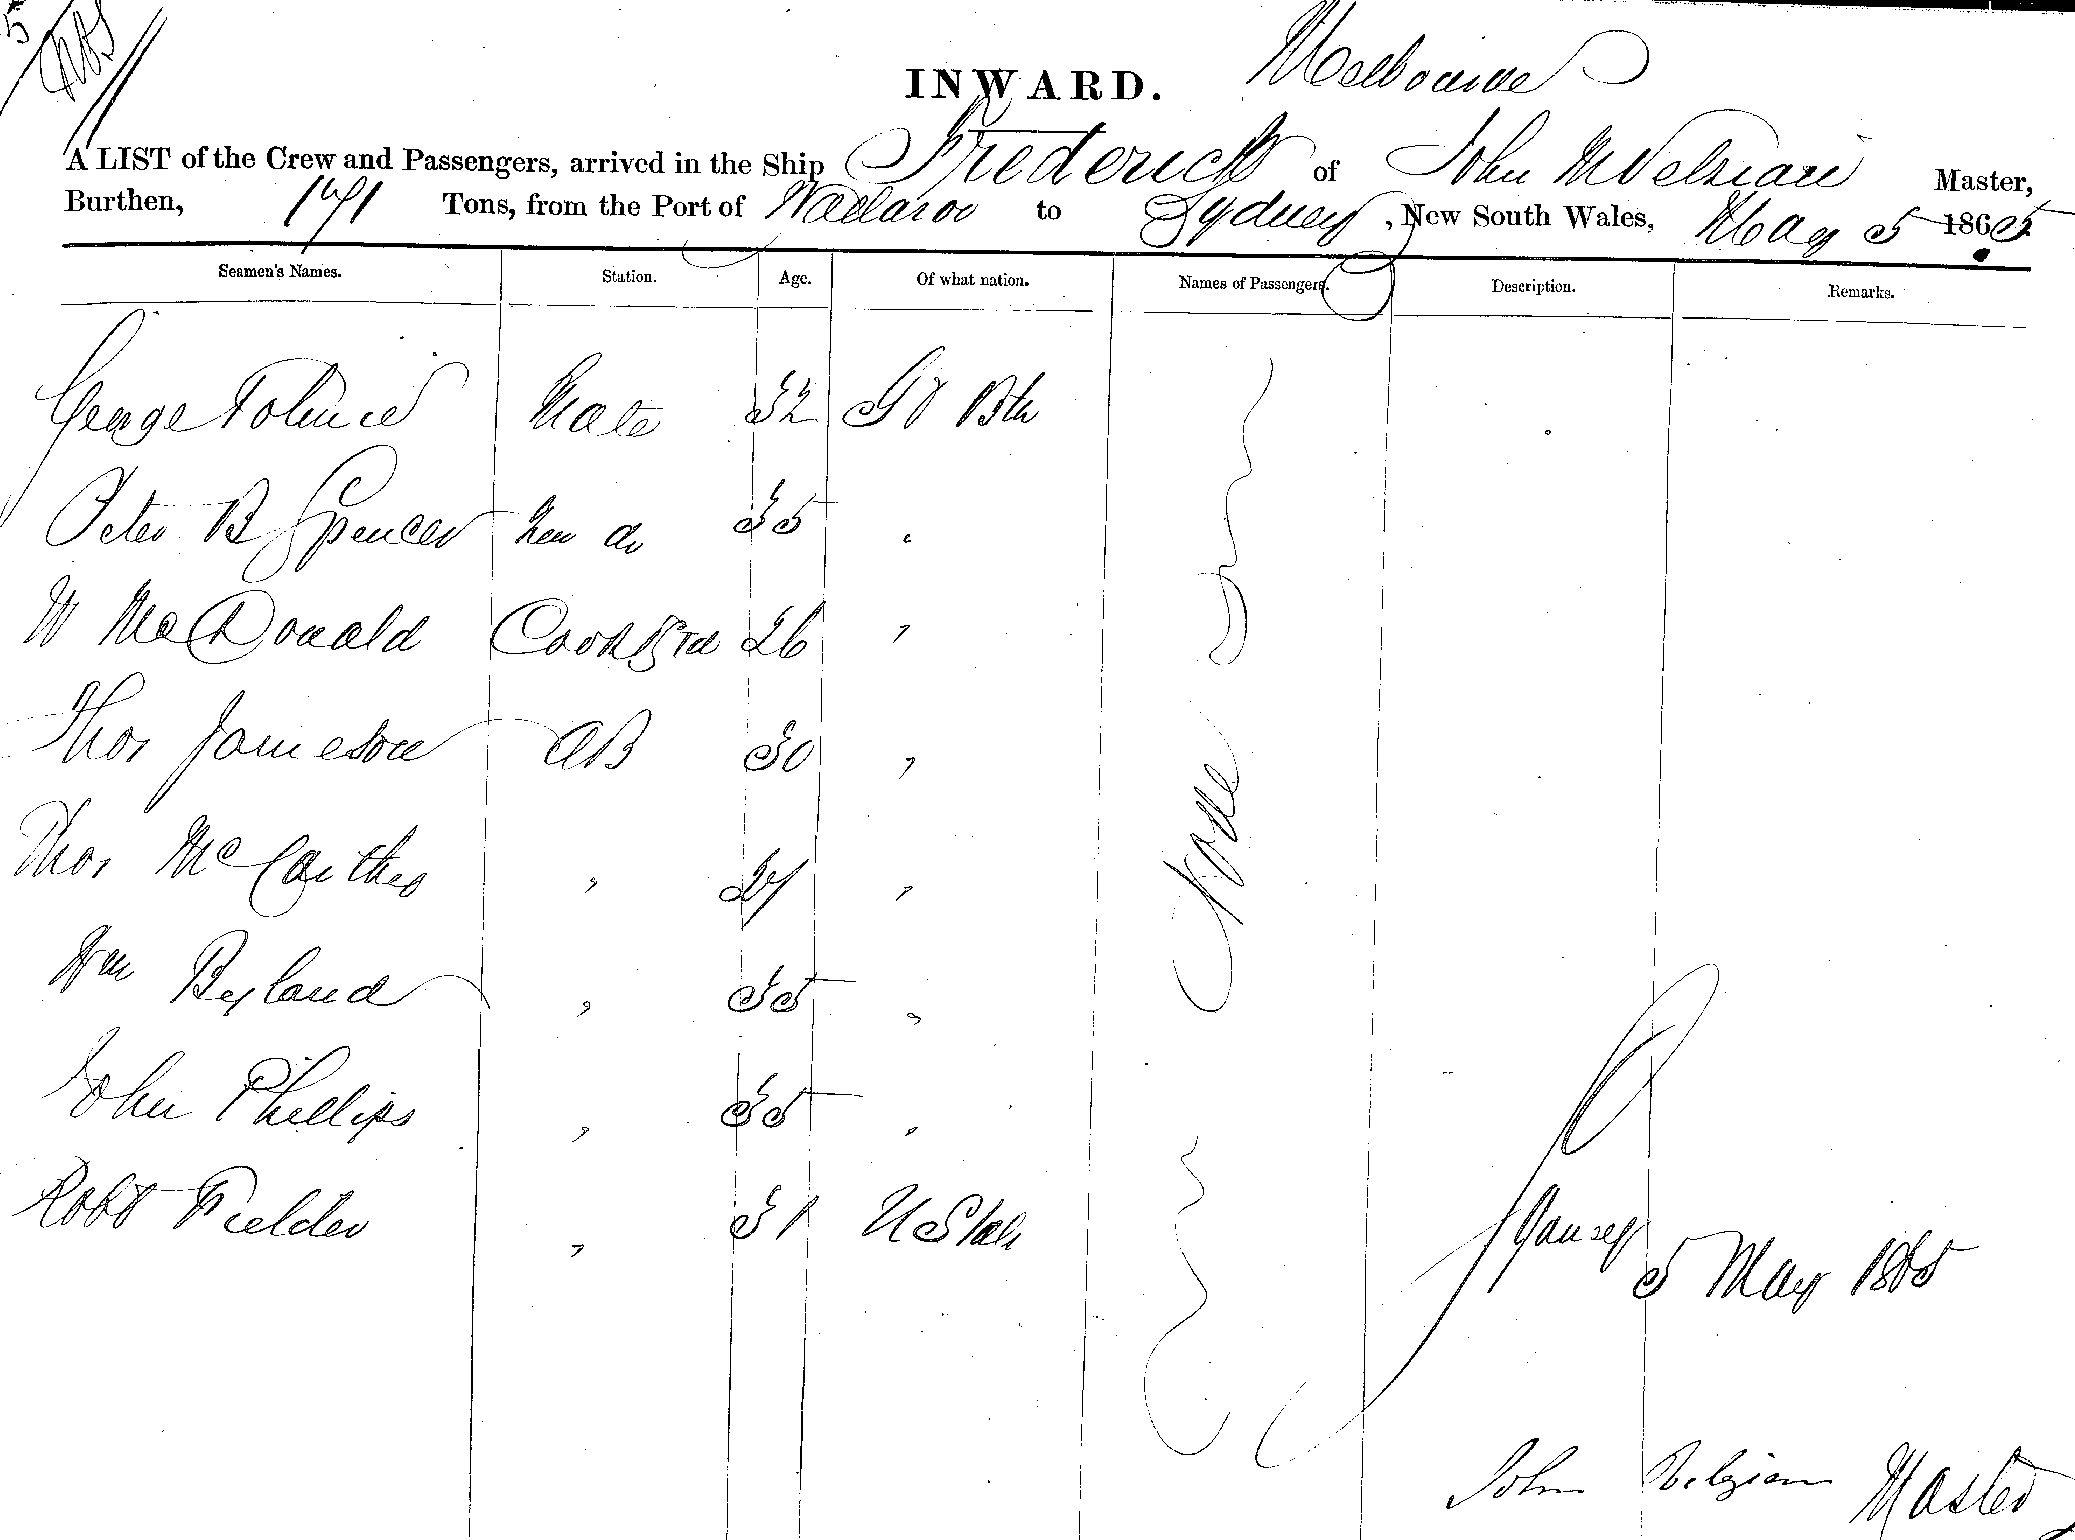 5
INWARD. Melbourne
A LIST of the Crew and Passengers, arrived in the Ship Frederick of John Master,
Burthen, 171 Tons, from the Port of Wallaroo to Sydney, New South Wales, May 5 1865
Seamen's Names. Station. Age. Of what nation. Names of Passengers. Description. Remarks.
George Mate 32 Gt Btn
Peter B Spencer 35 "
W McDonald Cook & Std 26 "
Thos Jameson AB 30 "
Thos McCarthy " 27 "
Wm Byland " 35 "
John Phillips " 35 "
Robt Fielder " 31 U States
None
5 May 1865
John Master